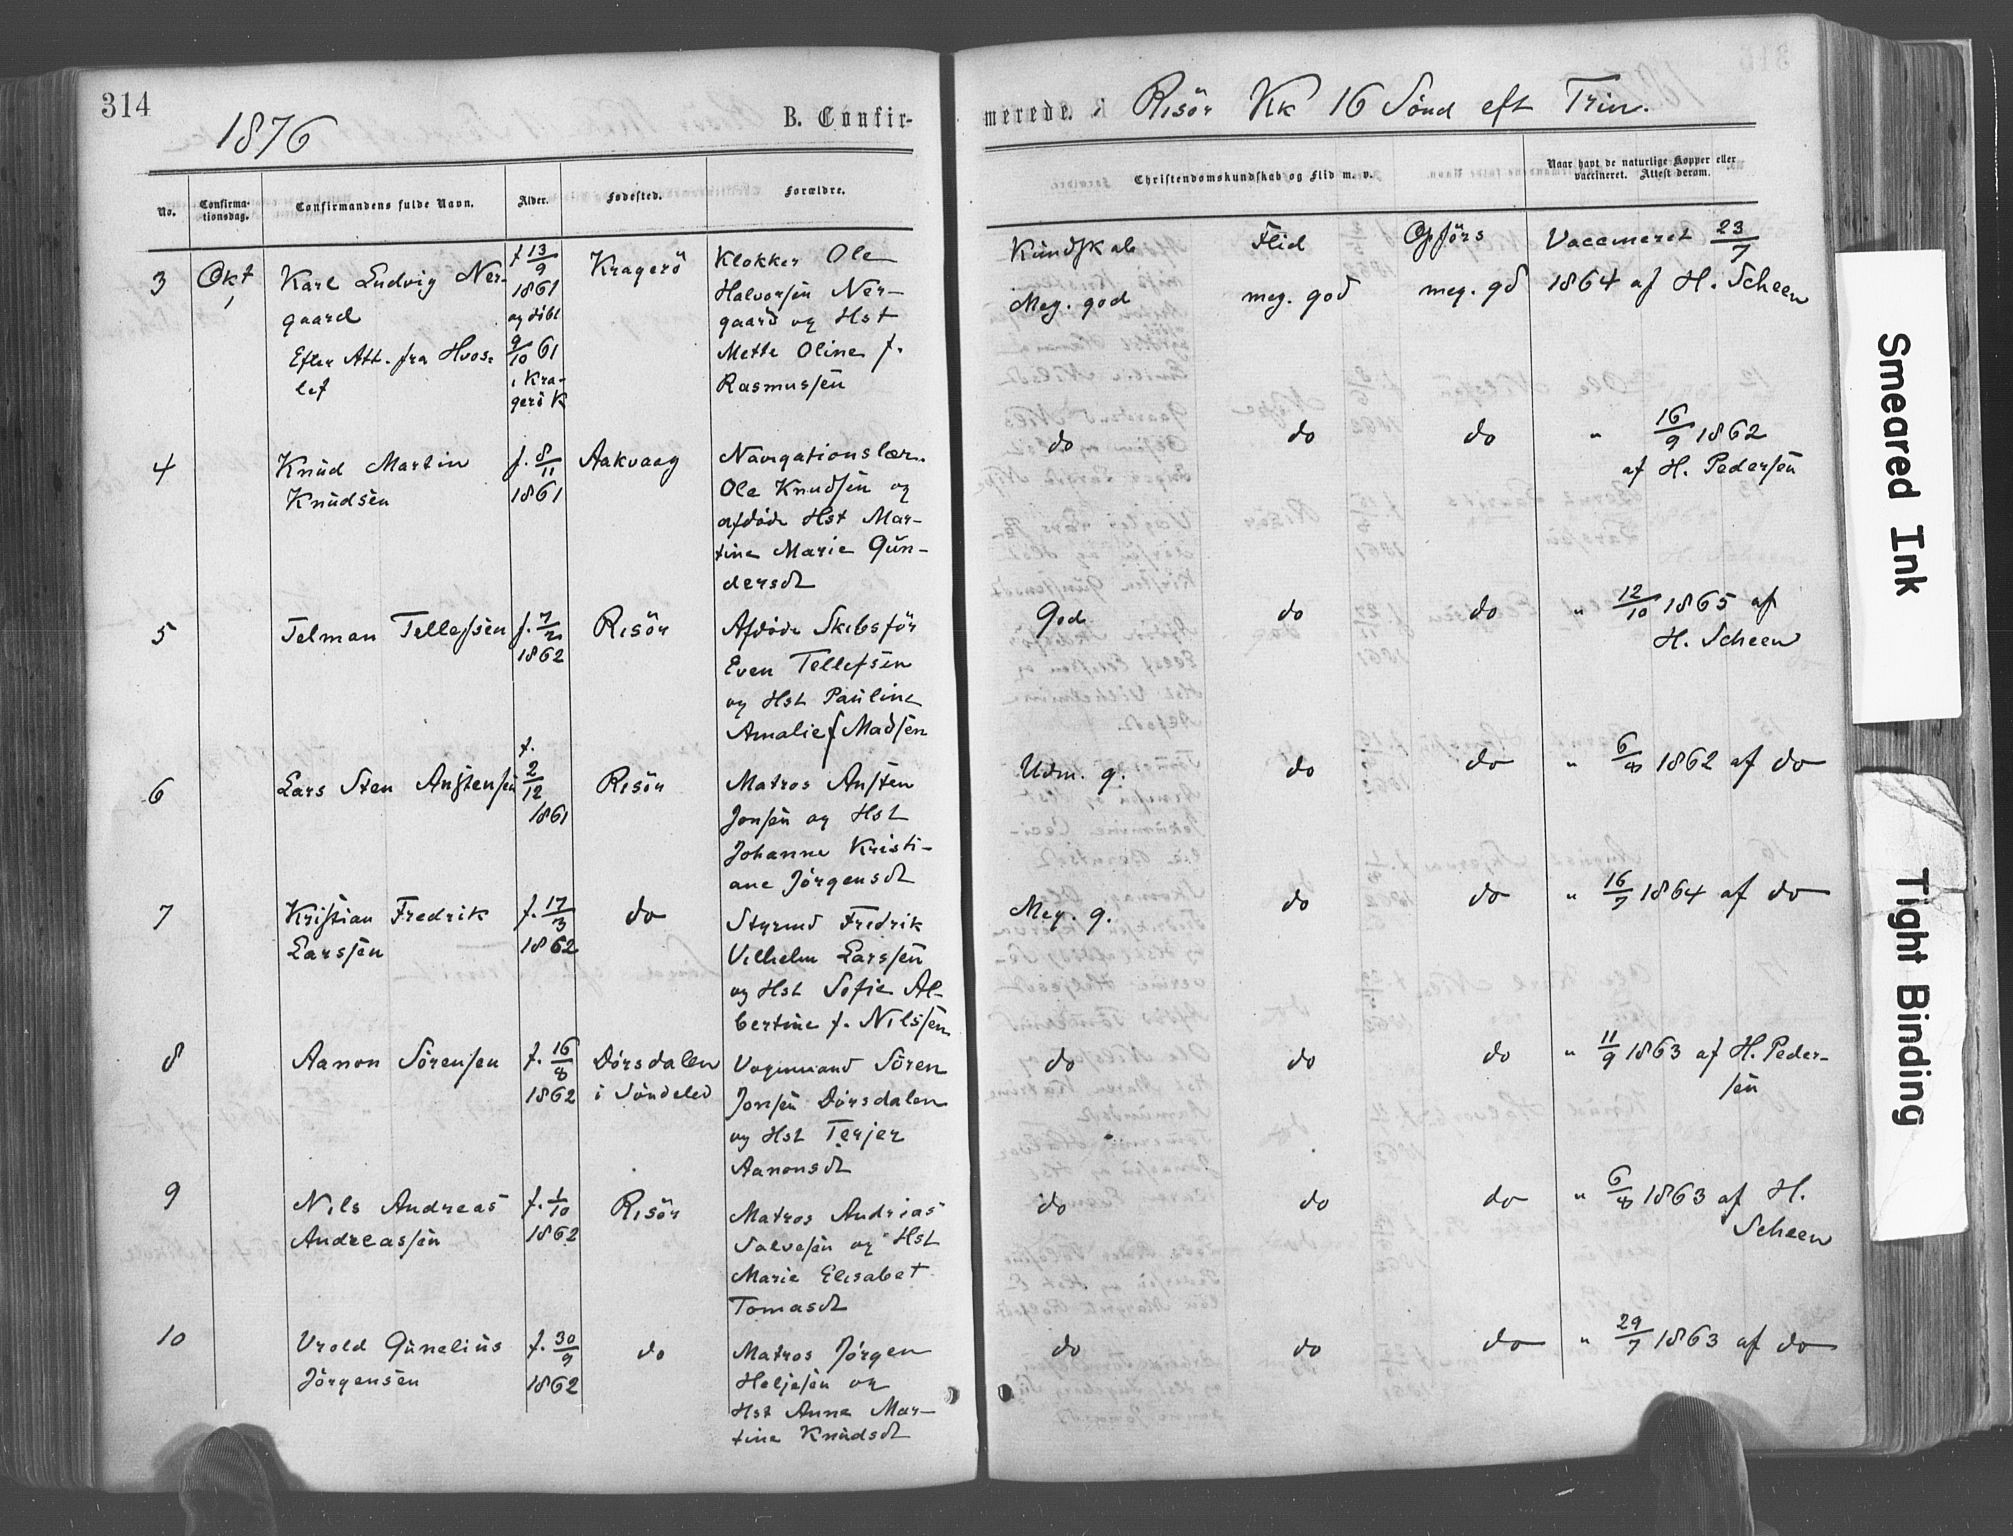 314
1876
B. Confir-
merede.
Risör Kk 16 Sönd eft Trin.
No.
Confirma-
tionsdag.
Confirmandens fulde Navn.
Alder.
Fødested.
Forældre.
Christendomskundskab og Flid m. v.
Naar havt de naturlige Kopper eller
vaccineret. Attest derom.
Kundskab Flid Opförs
3 Okt
1
Karl Ludvig Ner-
gaard
Efter Att. fra Hvos-
lef
f 13/9
1861
og döbt
9/10 61
i Kra-
gerö K
Kragerö
Klokker Ole
Halvorsen Ner-
gaard og Hst
Mette Oline f.
Rasmussen
Meg. god meg. god meg. gd
Vaccineret 23/7
1864 af H. Scheen
4
Knud Martin
Knudsen
f. 8/11
1861
Aakvaag
Navigationslær.
Ole Knudsen og
afdöde Hst Mar-
tine Marie Gun-
dersdt
do do do
" 16/9 1862
af H. Pedersen
5
Telman Tellefsen
f. 7/2
1862
Risör
Afdöde Skibsför
Even Tellefsen
og Hst Pauline
Amalie f Madsen
God do do
" 12/10 1865 af
H. Scheen
6
Lars Sten Anstensen
f.
2/12
1861
Risör
Matros Ansten
Jonsen og Hst
Johanne Kristi-
ane Jörgensdt
Udm. g. do do
" 6/8 1862 af do
7
Kristian Fredrik
Larssen
f. 17/3
1862
do
Styrmd Fredrik
Vilhelm Larssen
og Hst Sofie Al-
bertine f. Nilssen
Meg. g. do do
" 16/7 1864 af do
8
Aanon Sörensen
f. 16/8
1862
Dörsdalen
i Söndeled
Vognmand Sören
Jonsen Dörsdalen
og Hst Terjer
Aanonsdt
do do do
" 11/9 1863 af H. Peder-
sen
9
Nils Andreas
Andreassen
f. 1/10
1862
Risör
Matros Andrias
Salvesen og Hst
Marie Elisabet
Tomasdt
do do do
" 6/8 1863 af H.
Scheen
10
Vrold Gunelius
Jörgensen
f. 30/9
1862
do
Matros Jörgen
Heljesen og
Hst Anne Mar-
tine Knudsdt
do do do
" 29/7 1863 af do
Smeared Ink
Tight Binding